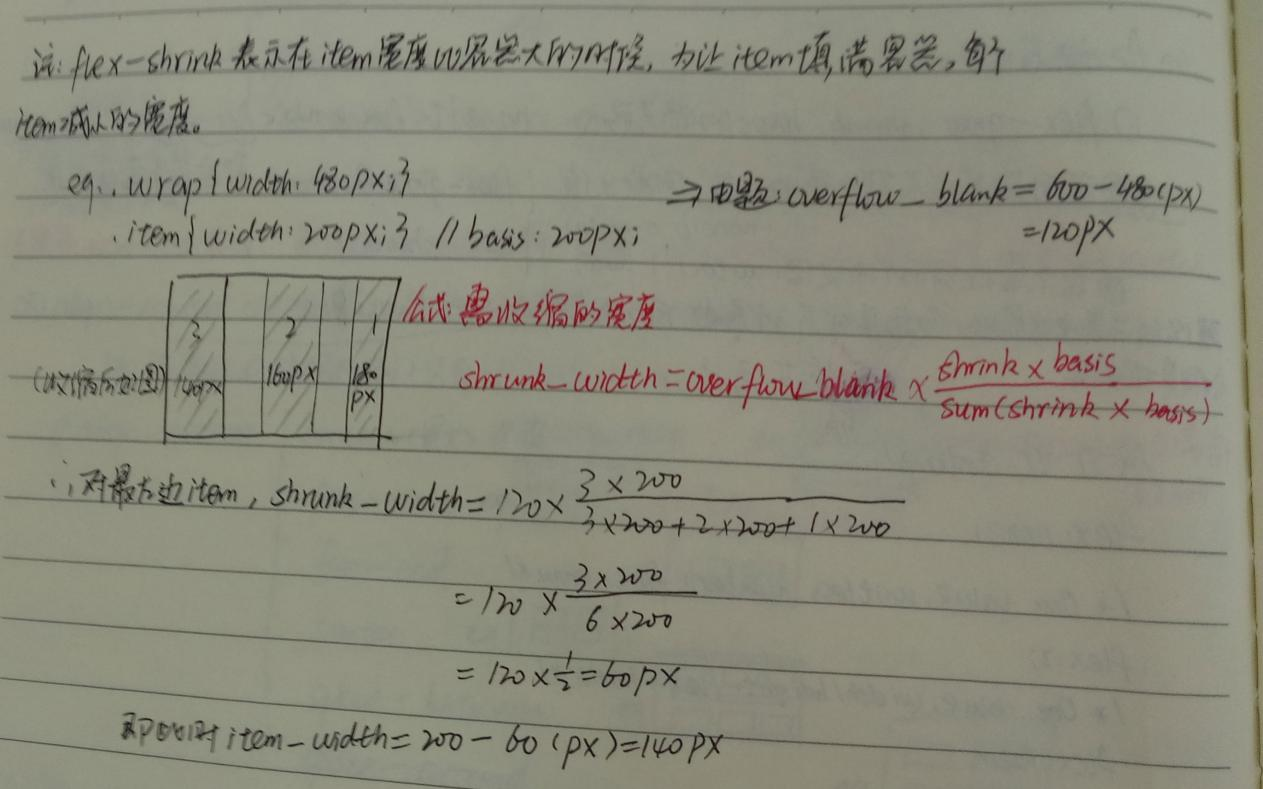 注: flex-shrink 表示在item宽度比容器大的时候, 为让item填满容器, 每个
item减小的宽度。
eg. .wrap{width: 480px;}
.item{width: 200px;} //basis: 200px;
⇒由题: overflow_blank = 600-480(px)
=120px
公式: 需收缩的宽度
3 2 1
(收缩后如图) 140px 160px 180px
shrunk_width = overflow_blank × shrink × basis / sum(shrink × basis)
∴对最左边item, shrunk_width = 120 × 3×200 / 3×200+2×200+1×200
= 120 × 3×200 / 6×200
= 120 × 1/2 = 60px
即此时item_width = 200 - 60 (px) = 140px